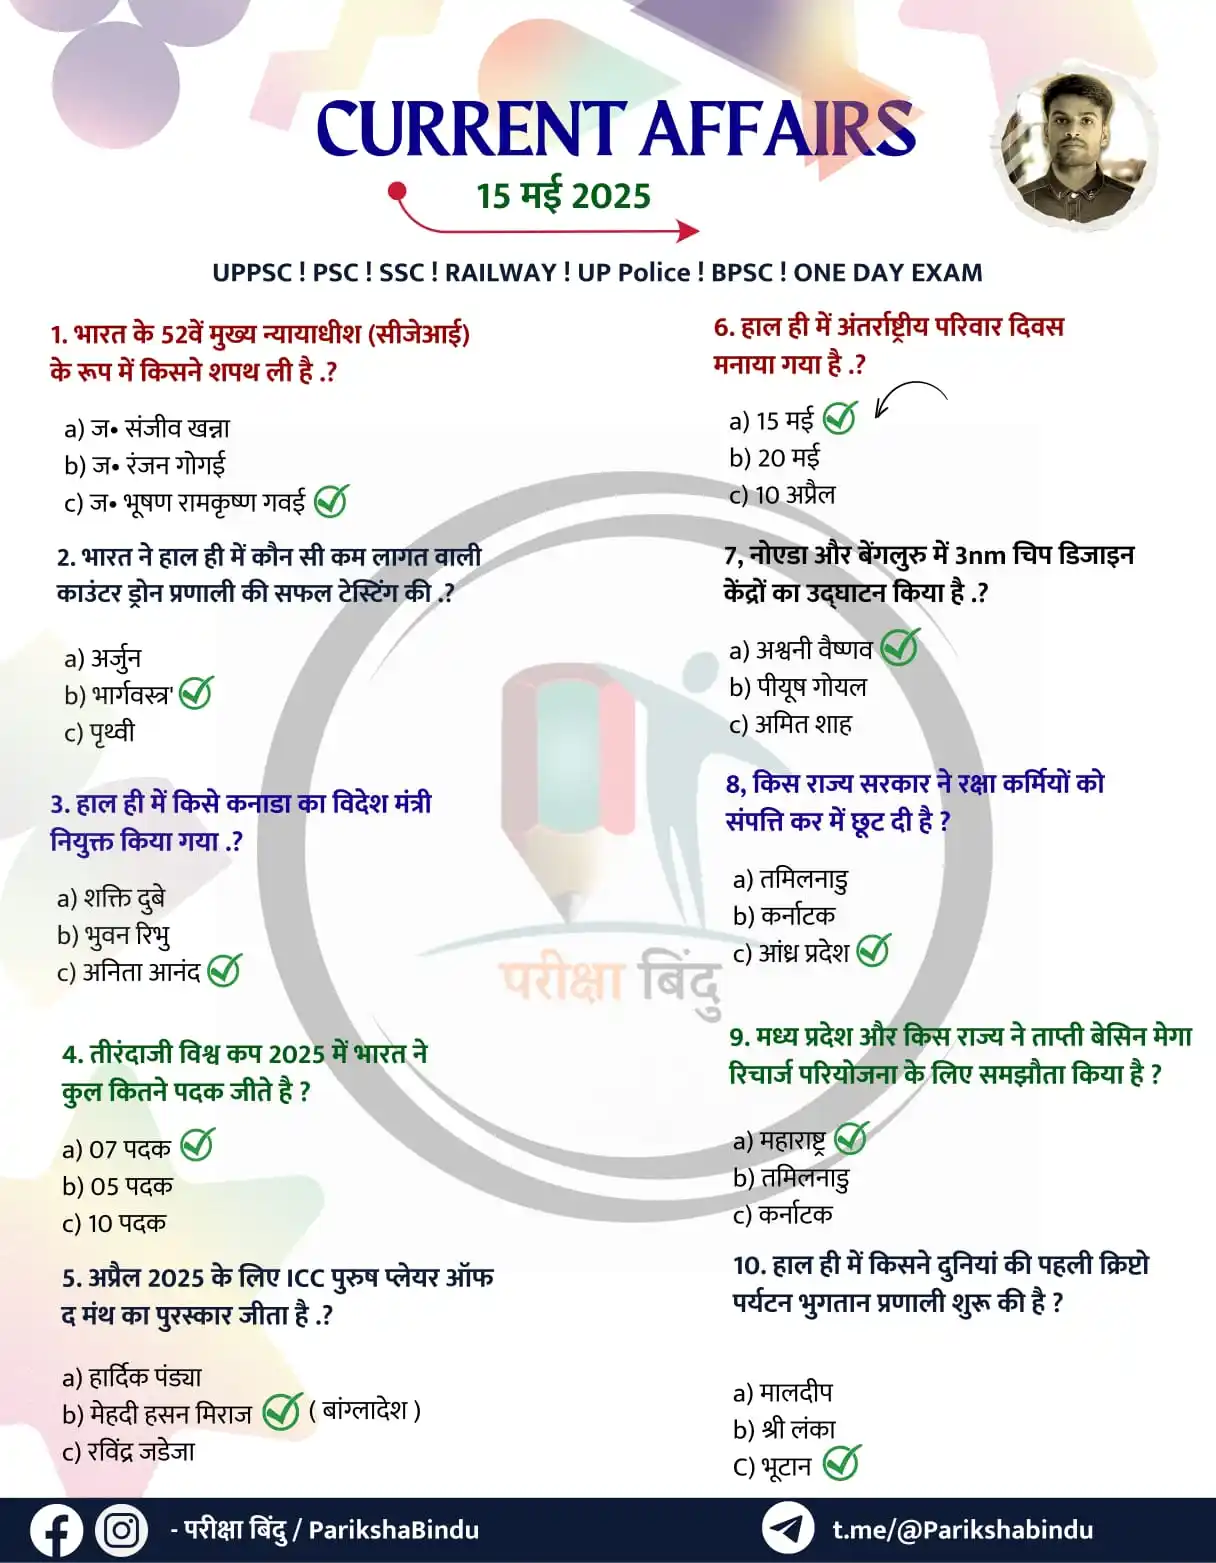 CURRENT AFFAIRS
15 मई 2025
UPPSC ! PSC ! SSC ! RAILWAY ! UP Police ! BPSC ! ONE DAY EXAM
1. भारत के 52वें मुख्य न्यायाधीश (सीजेआई)
के रूप में किसने शपथ ली है .?
a) ज• संजीव खन्ना
b) ज• रंजन गोगई
c) ज• भूषण रामकृष्ण गवई
2. भारत ने हाल ही में कौन सी कम लागत वाली
काउंटर ड्रोन प्रणाली की सफल टेस्टिंग की .?
a) अर्जुन
b) भार्गवस्त्र'
c) पृथ्वी
3. हाल ही में किसे कनाडा का विदेश मंत्री
नियुक्त किया गया .?
a) शक्ति दुबे
b) भुवन रिभु
c) अनिता आनंद
4. तीरंदाजी विश्व कप 2025 में भारत ने
कुल कितने पदक जीते है ?
a) 07 पदक
b) 05 पदक
c) 10 पदक
5. अप्रैल 2025 के लिए ICC पुरुष प्लेयर ऑफ
द मंथ का पुरस्कार जीता है .?
a) हार्दिक पंड्या
b) मेहदी हसन मिराज ( बांग्लादेश )
c) रविंद्र जडेजा
6. हाल ही में अंतर्राष्ट्रीय परिवार दिवस
मनाया गया है .?
a) 15 मई
b) 20 मई
c) 10 अप्रैल
7, नोएडा और बेंगलुरु में 3nm चिप डिजाइन
केंद्रों का उद्घाटन किया है .?
a) अश्वनी वैष्णव
b) पीयूष गोयल
c) अमित शाह
8, किस राज्य सरकार ने रक्षा कर्मियों को
संपत्ति कर में छूट दी है ?
a) तमिलनाडु
b) कर्नाटक
c) आंध्र प्रदेश
9. मध्य प्रदेश और किस राज्य ने ताप्ती बेसिन मेगा
रिचार्ज परियोजना के लिए समझौता किया है ?
a) महाराष्ट्र
b) तमिलनाडु
c) कर्नाटक
10. हाल ही में किसने दुनियां की पहली क्रिप्टो
पर्यटन भुगतान प्रणाली शुरू की है ?
a) मालदीप
b) श्री लंका
C) भूटान
परीक्षा बिंदु
- परीक्षा बिंदु / ParikshaBindu
t.me/@Parikshabindu